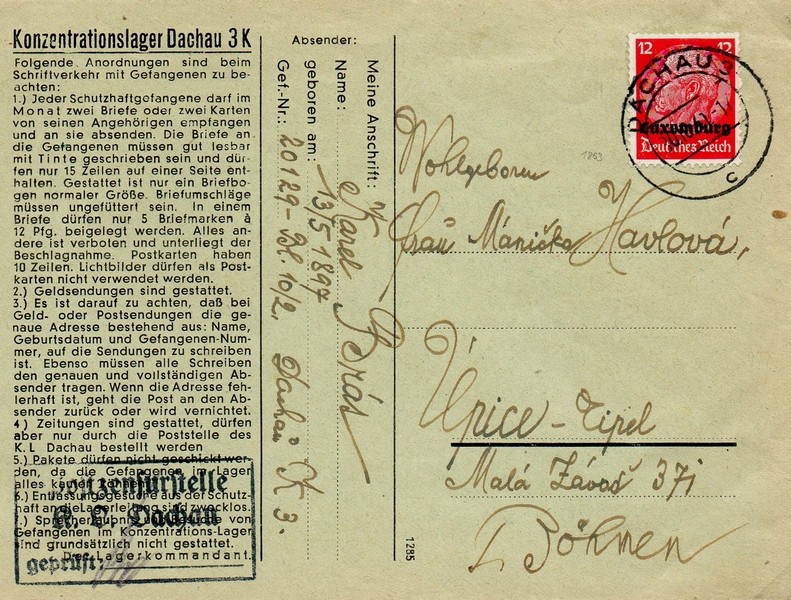 Konzentrationslager Dachau 3 K
Folgende Anordnungen sind beim
Schriftverkehr mit Gefangenen zu be-
achten:
1.) Jeder Schutzhaftgefangene darf im
Monat zwei Briefe oder zwei Karten
von seinen Angehörigen empfangen
und an sie absenden. Die Briefe an
die Gefangenen müssen gut lesbar
mit Tinte geschrieben sein und dür-
fen nur 15 Zeilen auf einer Seite ent-
halten. Gestattet ist nur ein Briefbo-
gen normaler Größe. Briefumschläge
müssen ungefüttert sein. In einem
Briefe dürfen nur 5 Briefmarken à
12 Pfg. beigelegt werden. Alles an-
dere ist verboten und unterliegt der
Beschlagnahme. Postkarten haben
10 Zeilen. Lichtbilder dürfen als Post-
karten nicht verwendet werden.
2.) Geldsendungen sind gestattet.
3.) Es ist darauf zu achten, daß bei
Geld- oder Postsendungen die ge-
naue Adresse bestehend aus: Name,
Geburtsdatum und Gefangenen-Num-
mer, auf die Sendungen zu schreiben
ist. Ebenso müssen alle Schreiben
den genauen und vollständigen Ab-
sender tragen. Wenn die Adresse feh-
lerhaft ist, geht die Post an den Ab-
sender zurück oder wird vernichtet.
4.) Zeitungen sind gestattet, dürfen
aber nur durch die Poststelle des
K.L Dachau bestellt werden
5.) Pakete dürfen nicht geschickt wer-
den, da die Gefangenen im Lager
alles kaufen können.
6.) Entlassungsgesuche aus der Schutz-
haft an die Lagerleitung sind zwecklos.
7.) Sprecherlaubnis und Besuche von
Gefangenen im Konzentrations-Lager
sind grundsätzlich nicht gestattet.
Der Lagerkommandant.
Postzensurstelle
K. L. Dachau
geprüft:
Absender:
Meine Anschrift:
Name: Karel
geboren am: 13/5 1897
Gef.-Nr.: 20129 - Bl. 10/2, Dachau K 3.
12 12
Luxemburg
Deutsches Reich
DACHAU 3
c
1293
Wohlgeboren
Frau Mánička Havlová,
Úpice - Tipel
Malá Závoš 371
Böhmen
1285